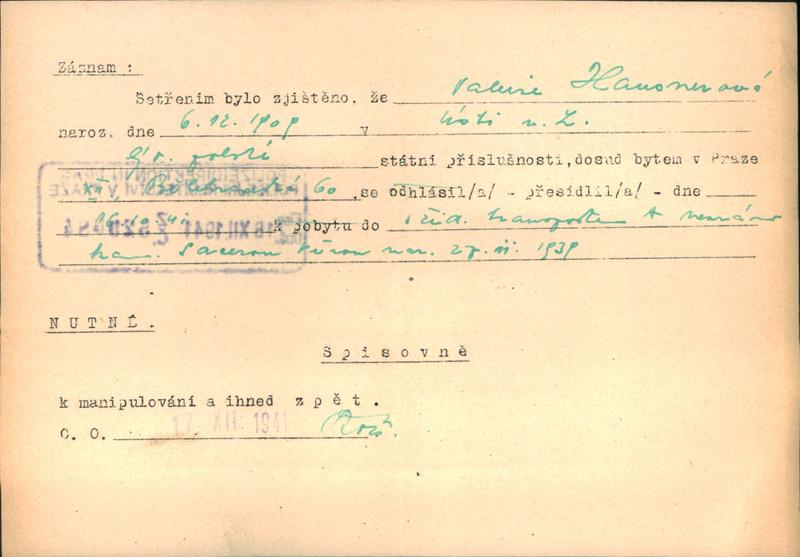 Záznam :
Šetřením bylo zjištěno, že Valerie Hausnerová
naroz. dne 6.12.1909 v Ústí n. L.
státní příslušnosti, dosud bytem v Praze
XII, 60 , se odhlásil/a/ - přesídlil/a/ - dne
k pobytu do žid. transportem A neznámo
kam. nar. 27. 11. 1939
N U T N É .
S p i s o v n ě
k manipulování a ihned z p ě t .
C. O. 17. XII. 1941